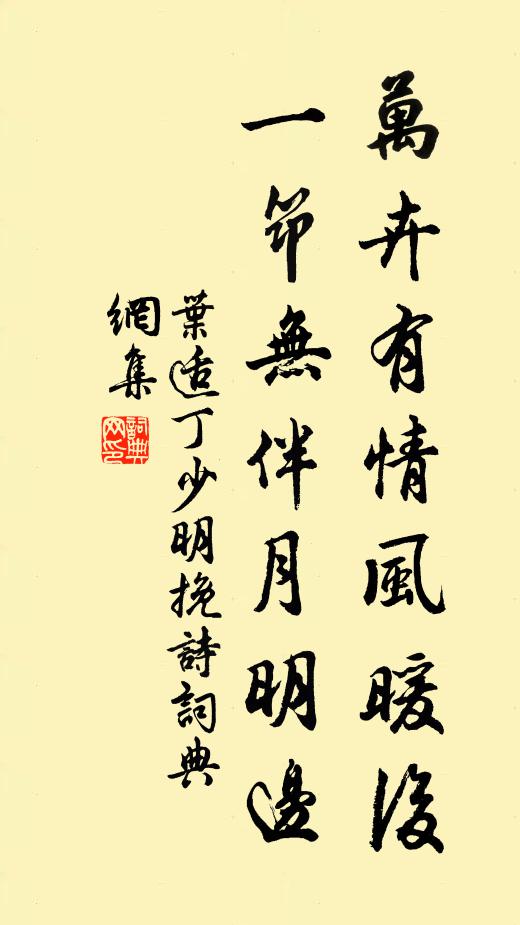 萬卉有情風暖後
一筇無伴月明邊
葉适丁少明挽詩詞典
網集
詞典
网印